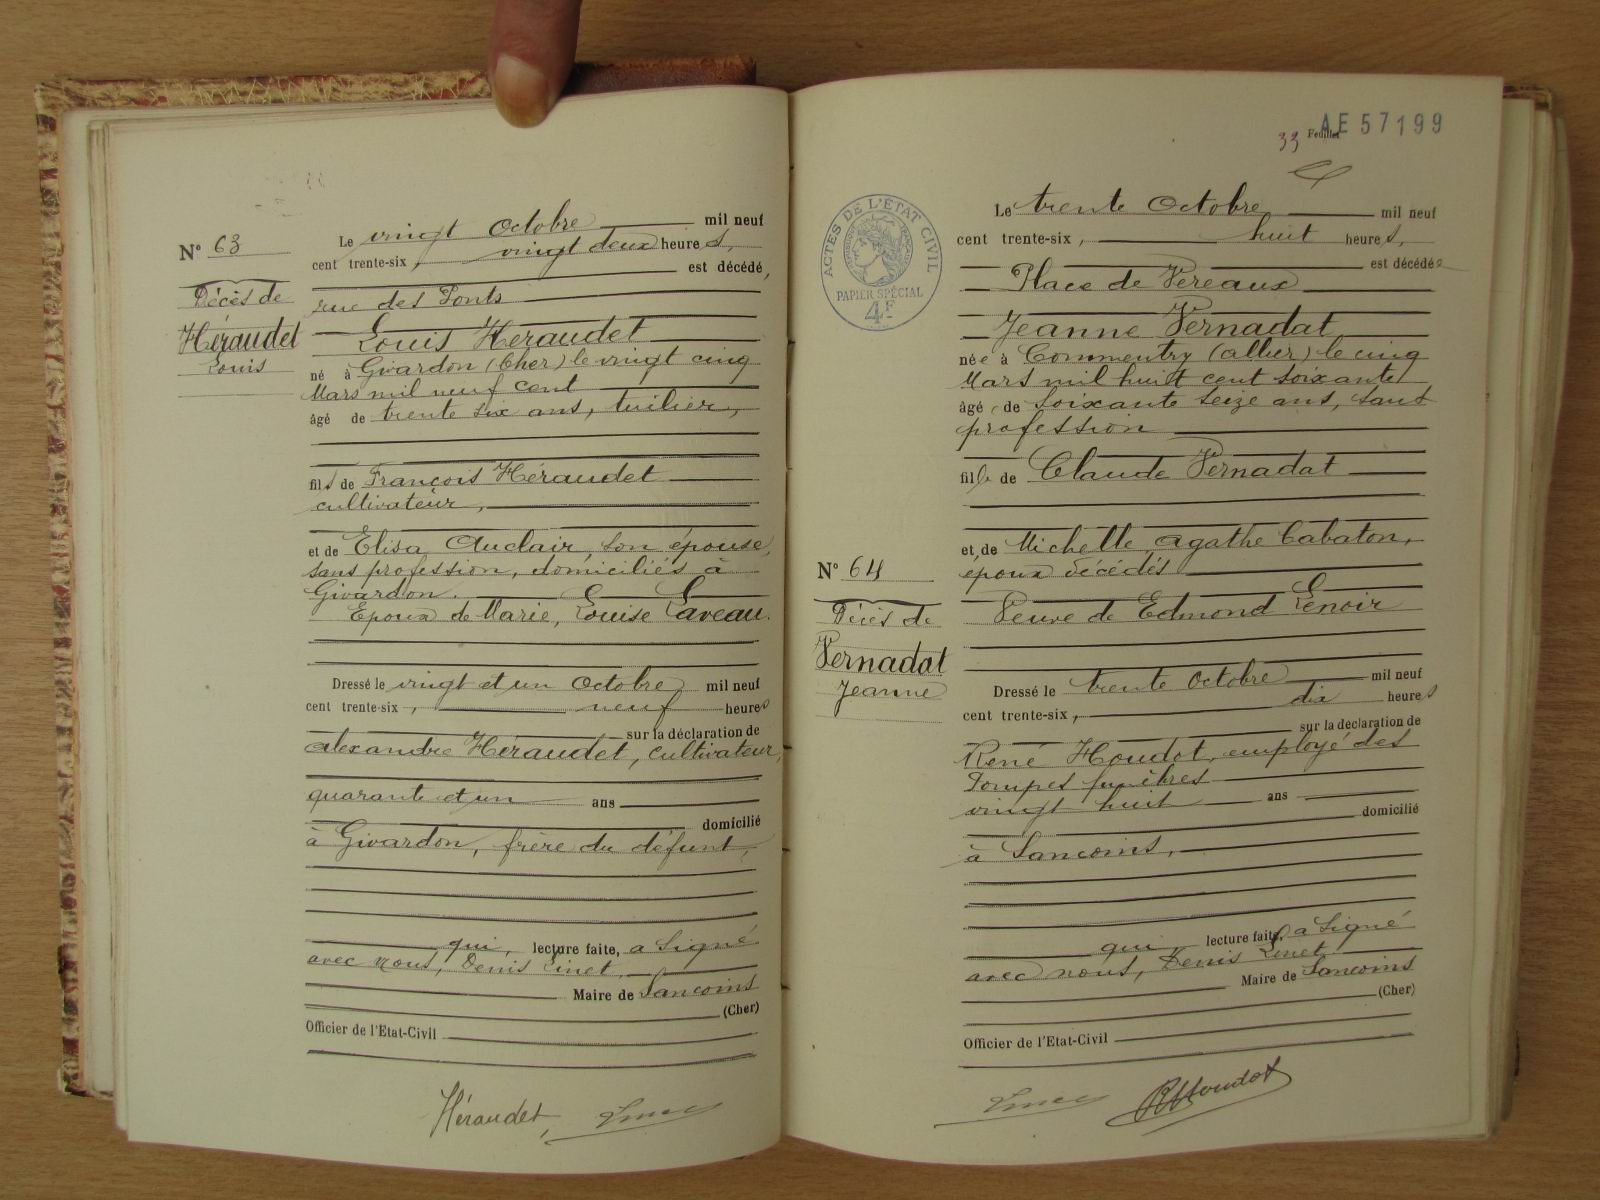 N° 63
Décès de
Héraudet
Louis
Le vingt octobre mil neuf
cent trente-six, vingt deux heures,
est décédé,
rue des Ponts
Louis Héraudet
né à Givardon (Cher) le vingt cinq
Mars mil neuf cent
âgé de trente six ans, tuilier,
fils de François Héraudet
cultivateur,
et de Elisa Auclair, son épouse,
sans profession, domiciliés à
Givardon.
Epoux de Marie, Louise Laveau.
Dressé le vingt et un octobre mil neuf
cent trente-six, neuf heures
sur la déclaration de
alexandre Héraudet, cultivateur,
quarante et un ans
domicilié
à Givardon, frère du défunt,
qui, lecture faite, a signé
avec nous, Denis Linet,
Maire de Sancoins
(Cher)
Officier de l'Etat-Civil
Héraudet
Linet
AE 57199
33 Feuillet
ACTES DE L'ÉTAT CIVIL
PAPIER SPÉCIAL
4F
N° 64
Décès de
Pernadat
Jeanne
Le trente Octobre mil neuf
cent trente-six, huit heures,
est décédée
Place de Vereaux
Jeanne Pernadat
née à Commentry (allier) le cinq
Mars mil huit cent soixante
âgée de soixante seize ans, sans
profession
fille de Claude Pernadat
et de Michelle agathe Cabaton,
époux décédés
Veuve de Edmond Lenoir
Dressé le trente Octobre mil neuf
cent trente-six, dix heures
sur la déclaration de
René Houdot, employé des
Pompes funèbres
vingt huit ans
domicilié
à Sancoins,
qui, lecture faite, a signé
avec nous, Denis Linet
Maire de Sancoins
(Cher)
Officier de l'Etat-Civil
Linet
RHoudot